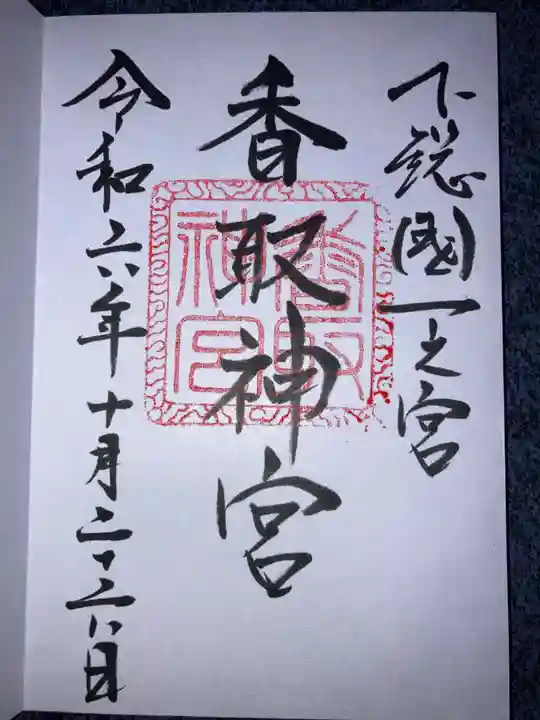 下総國一之宮
香取神宮
香取神宮
令和六年十月二十六日